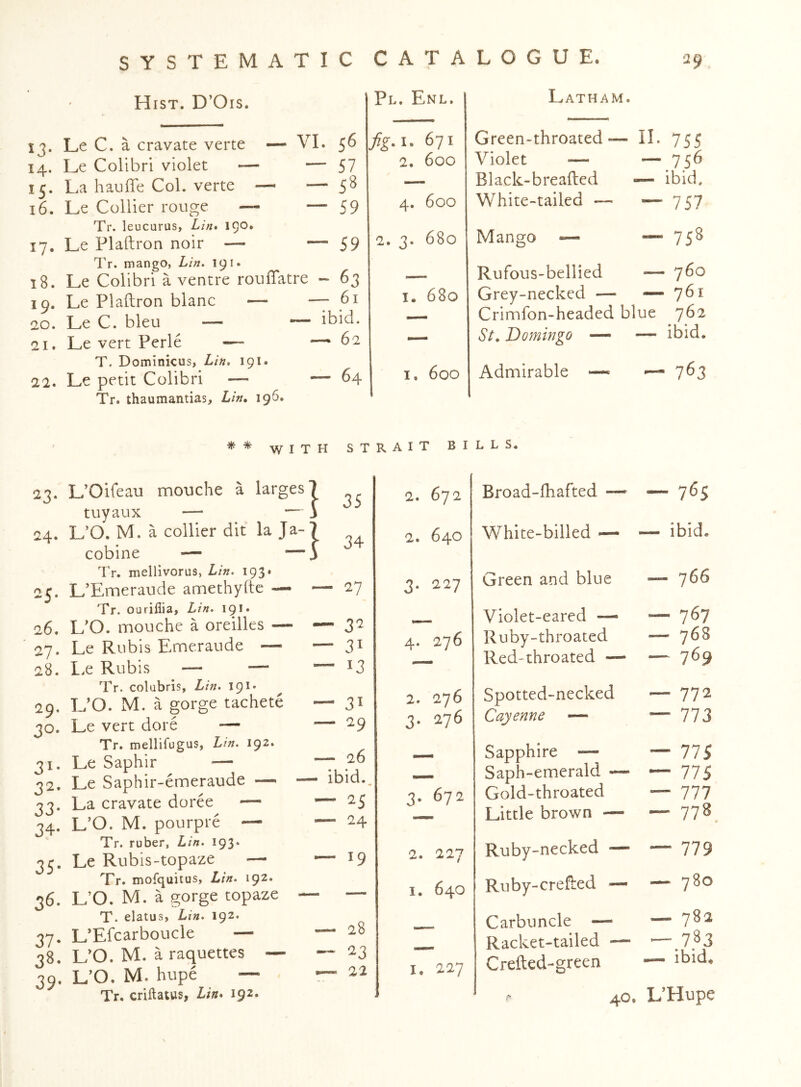 SYSTEMATIC CATALOGUE. 29
Hist. D'Ois. Pl. Enl. Latham.
13. Le C. à cravate verte — VI. 56 fig. 1. 671 Green-throated — II. 755
14. Le Colibri violet — — 57 2. 600 Violet — — 756
15. La hauſſe Col. verte — — 58 — Black-breaſted — ibid.
16. Le Collier rouge — — 59 4. 600 White-tailed — — 757
Tr. leucurus, Lin. 190.
17. Le Plaſtron noir — — 59 2. 3. 680 Mango — — 758
Tr. mango, Lin. 191.
18. Le Colibri à ventre rouſſatre — 63 — Rufous-bellied — 760
19. Le Plaſtron blanc — — 61 1. 680 Grey-necked — — 761
20. Le C. bleu — — ibid. — Crimſon-headed blue 762
21. Le vert Perlé — — 62 — St. Domingo — — ibid.
T. Dominicus, Lin. 191.
22. Le petit Colibri — — 64 1. 600 Admirable — — 763
Tr. thaumantias, Lin. 196.
* * WITH STRAIT BILLS.
23. L'Oiſeau mouche à larges
tuyaux — — } 35 2. 672 Broad-ſhafted — — 765
24. L'O. M. à collier dit la Ja-
cobine — — } 34 2. 640 White-billed — — ibid.
Tr. mellivorus, Lin. 193.
25. L'Emeraude amethyſte — — 27 3. 227 Green and blue — 766
Tr. ouriſſia, Lin. 191.
26. L'O. mouche à oreilles — — 32 — Violet-eared — — 767
27. Le Rubis Emeraude — — 31 4. 276 Ruby-throated — 768
28. Le Rubis — — — 13 — Red-throated — — 769
Tr. colubris, Lin. 191.
29. L'O. M. à gorge tacheté — 31 2. 276 Spotted-necked — 772
30. Le vert doré — — 29 3. 276 Cayenne — — 773
Tr. mellifugus, Lin. 192.
31. Le Saphir — — 26 — Sapphire — — 775
32. Le Saphir-émeraude — — ibid. — Saph-emerald — — 775
33. La cravate dorée — — 25 3. 672 Gold-throated — 777
34. L'O. M. pourpré — — 24 — Little brown — — 778
Tr. ruber, Lin. 193.
35. Le Rubis-topaze — — 19 2. 227 Ruby-necked — — 779
Tr. moſquitus, Lin. 192.
36. L'O. M. à gorge topaze — — 1. 640 Ruby-creſted — — 780
T. elatus, Lin. 192.
37. L'Eſcarboucle — — 28 — Carbuncle — — 782
38. L'O. M. à raquettes — — 23 — Racket-tailed — — 783
39. L'O. M. hupé — — 22 1. 227 Creſted-green — ibid.
Tr. criſtatus, Lin. 192.
40. L'Hupe